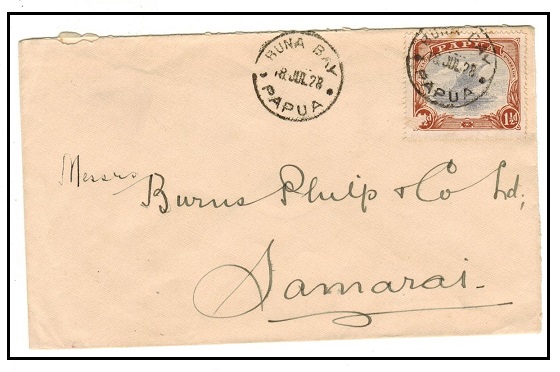 BUNA BAY
18 JUL 28
PAPUA
BUNA BAY
18 JUL 28
PAPUA
PAPUA
1½d
Messrs Burns Philp & Co Ltd,
Samarai.